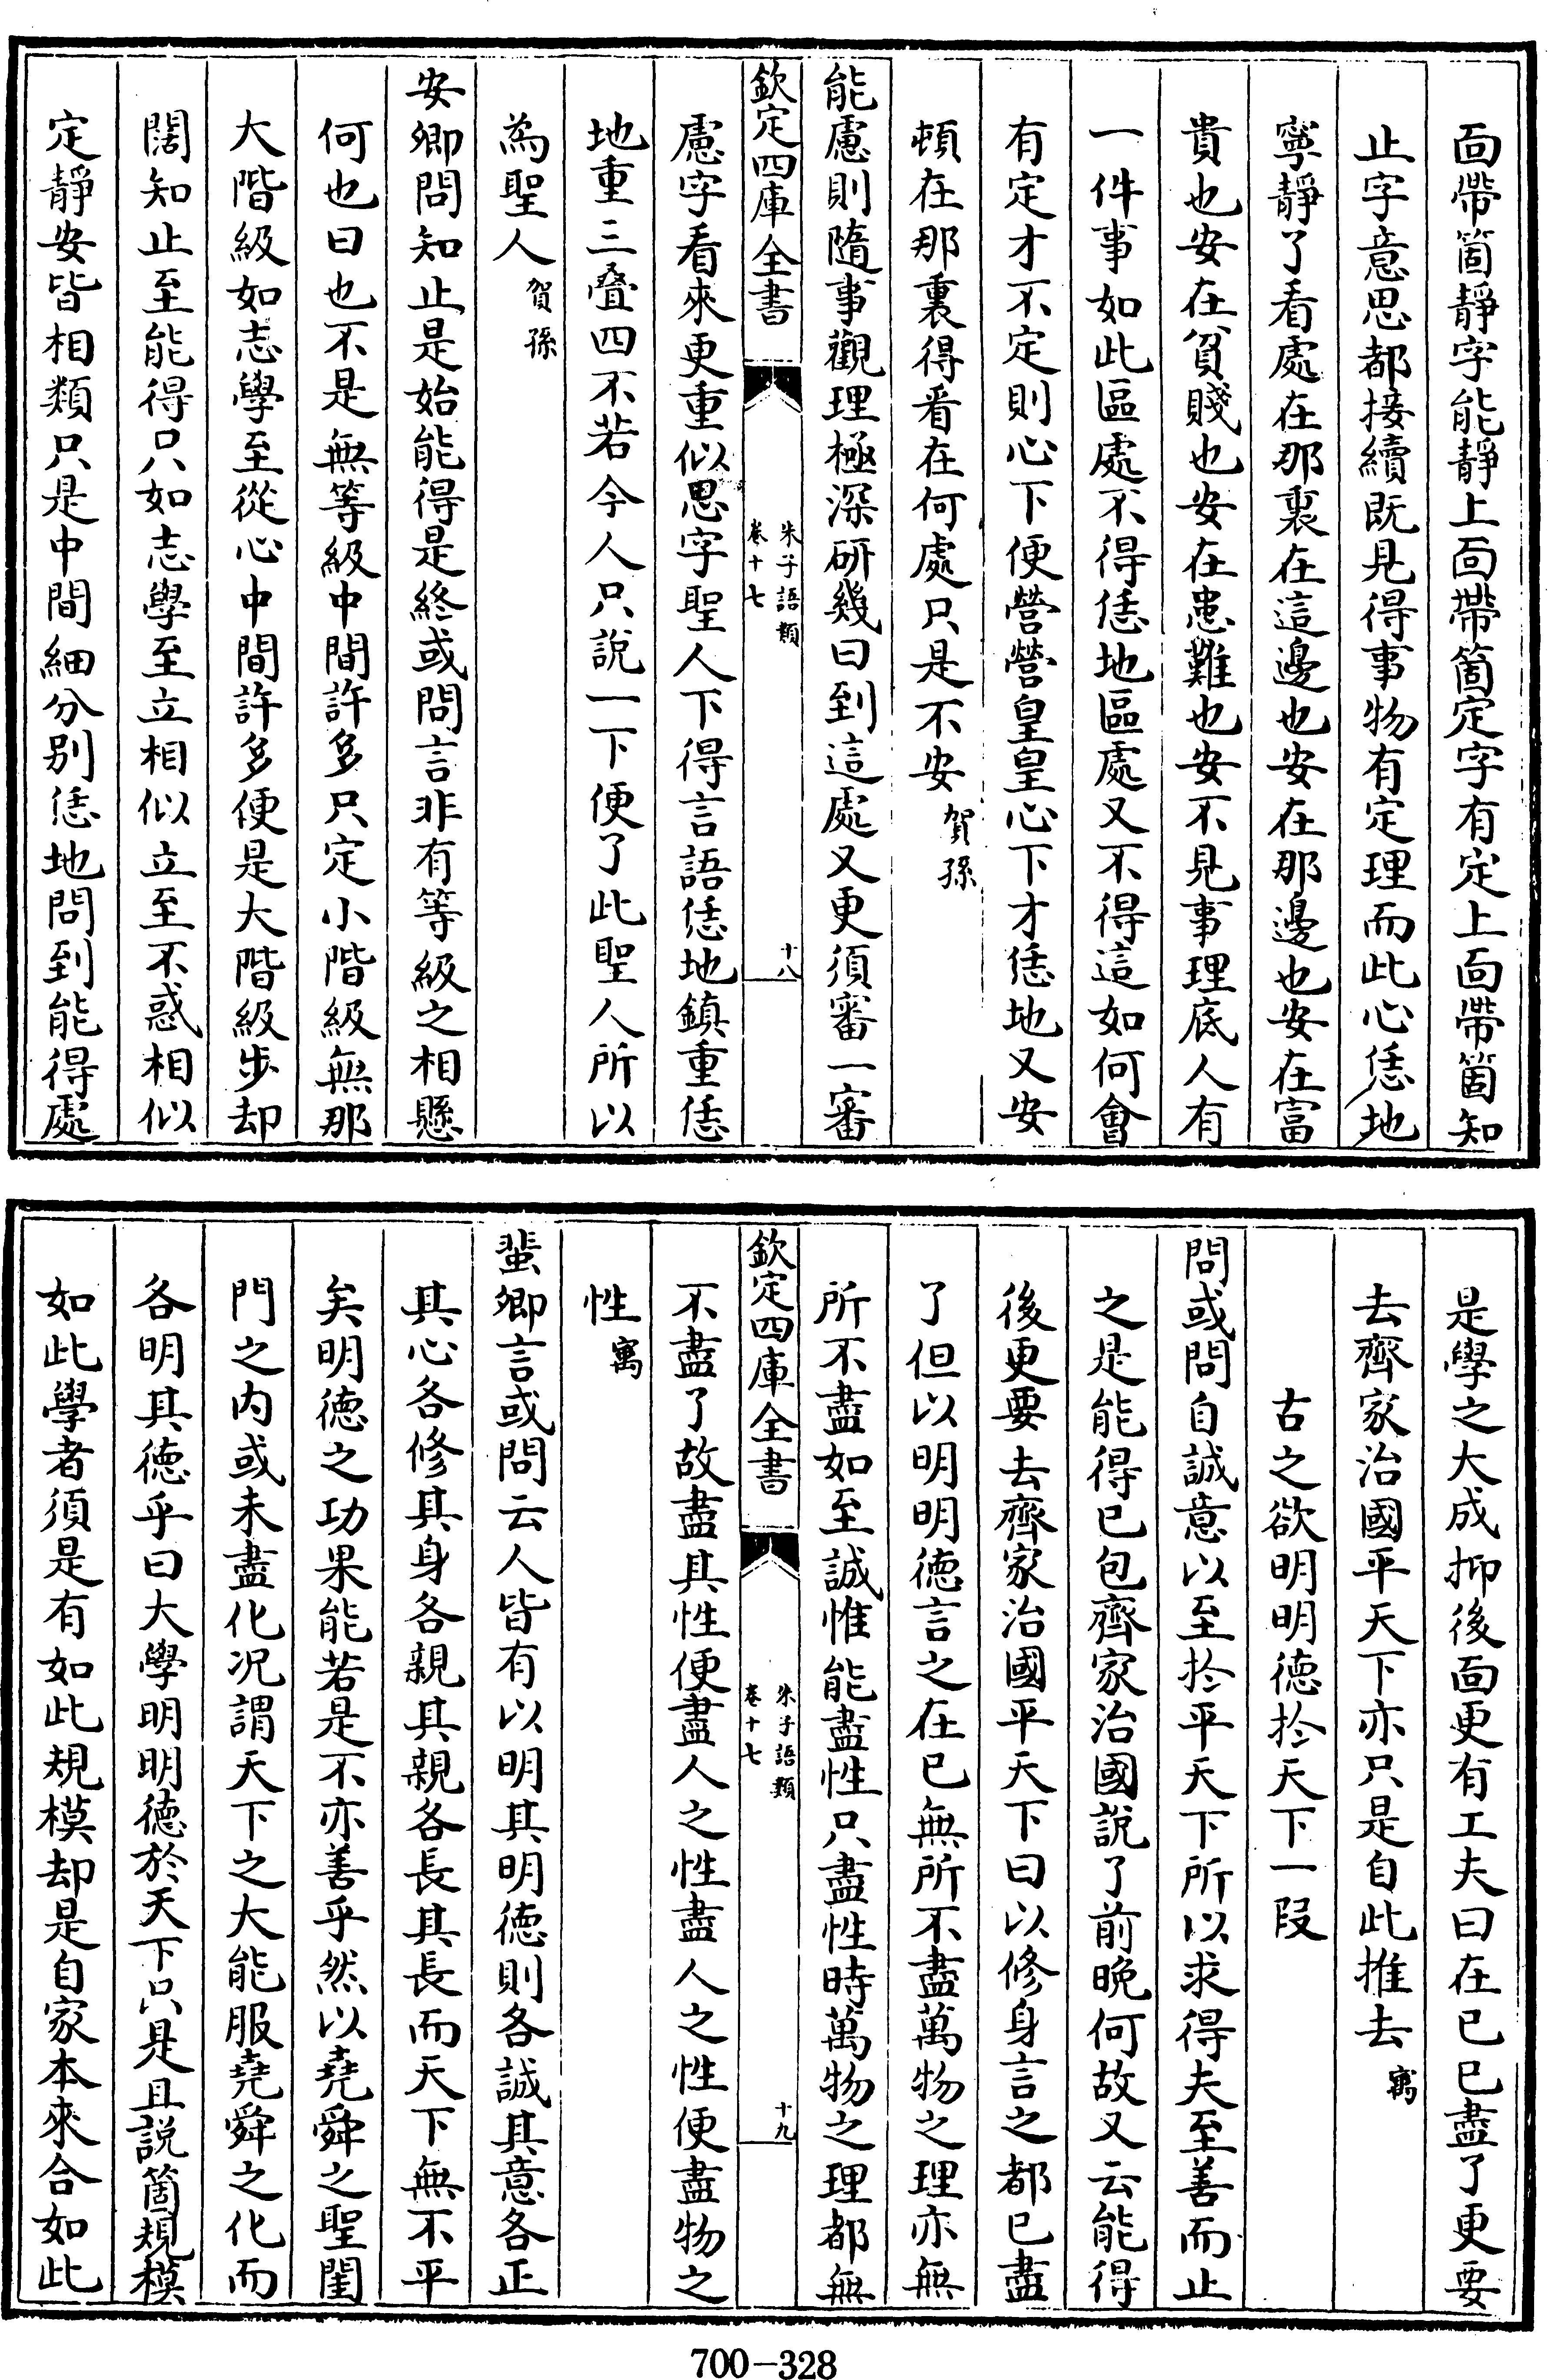 面帶箇靜字能靜上面帶箇定字有定上面帶箇知
止字意思都接續既見得事物有定理而此心恁地
寧靜了看處在那裏在這邊也安在那邊也安在富
貴也安在貧賤也安在患難也安不見事理底人有
一件事如此區處不得恁地區處又不得這如何會
有定才不定則心下便營營皇皇心下才恁地又安
頓在那裏得看在何處只是不安賀孫
能慮則隨事觀理極深研幾曰到這處又更須審一審
欽定四庫全書
朱子語類
卷十七
十八
慮字看來更重似思字聖人下得言語恁地鎮重恁
地重三疊四不若今人只說一下便了此聖人所以
為聖人賀孫
安卿問知止是始能得是終或問言非有等級之相懸
何也曰也不是無等級中間許多只定小階級無那
大階級如志學至從心中間許多便是大階級步却
闊知止至能得只如志學至立相似立至不惑相似
定靜安皆相類只是中間細分別恁地問到能得處
是學之大成抑後面更有工夫曰在已已盡了更要
去齊家治國平天下亦只是自此推去㝢
古之欲明明徳扵天下一段
問或問自誠意以至扵平天下所以求得夫至善而止
之是能得已包齊家治國說了前晚何故又云能得
後更要去齊家治國平天下曰以修身言之都已盡
了但以明明徳言之在已無所不盡萬物之理亦無
所不盡如至誠惟能盡性只盡性時萬物之理都無
欽定四庫全書
朱子語類
卷十七
十九
不盡了故盡其性便盡人之性盡人之性便盡物之
性㝢
蜚卿言或問云人皆有以明其明徳則各誠其意各正
其心各修其身各親其親各長其長而天下無不平
矣明徳之功果能若是不亦善乎然以堯舜之聖閨
門之内或未盡化况謂天下之大能服堯舜之化而
各明其徳乎曰大學明明徳於天下只是且說箇規模
如此學者須是有如此規模却是自家本來合如此
700-328